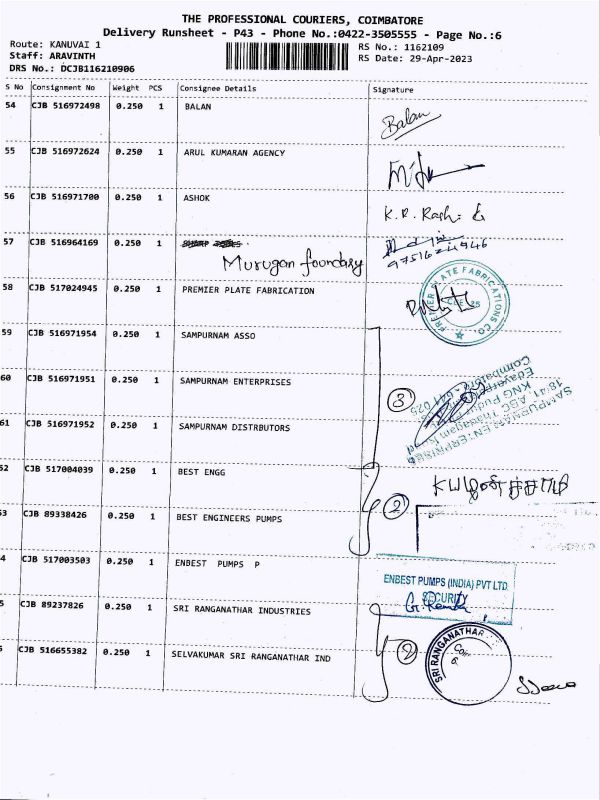 THE PROFESSIONAL COURIERS, COIMBATORE
Delivery Runsheet - P43 - Phone No.:0422-3505555 - Page No.:6
Route: KANUVAI 1 RS No.: 1162109
Staff: ARAVINTH RS Date: 29-Apr-2023
DRS No.: DCJB116210906
S No Consignment No Weight PCS Consignee Details Signature
54 CJB 516972498 0.250 1 BALAN Balan
55 CJB 516972624 0.250 1 ARUL KUMARAN AGENCY
56 CJB 516971700 0.250 1 ASHOK K.R.
57 CJB 516964169 0.250 1
Murugan foundary
58 CJB 517024945 0.250 1 PREMIER PLATE FABRICATION
PREMIER PLATE FABRICATIONS CO
59 CJB 516971954 0.250 1 SAMPURNAM ASSO
60 CJB 516971951 0.250 1 SAMPURNAM ENTERPRISES
3
61 CJB 516971952 0.250 1 SAMPURNAM DISTRBUTORS
52 CJB 517004039 0.250 1 BEST ENGG
2
3 CJB 89338426 0.250 1 BEST ENGINEERS PUMPS
4 CJB 517003503 0.250 1 ENBEST PUMPS P
ENBEST PUMPS (INDIA) PVT LTD
SECURITY
5 CJB 89237826 0.250 1 SRI RANGANATHAR INDUSTRIES
2
SRI RANGANATHAR
CJB 516655382 0.250 1 SELVAKUMAR SRI RANGANATHAR IND